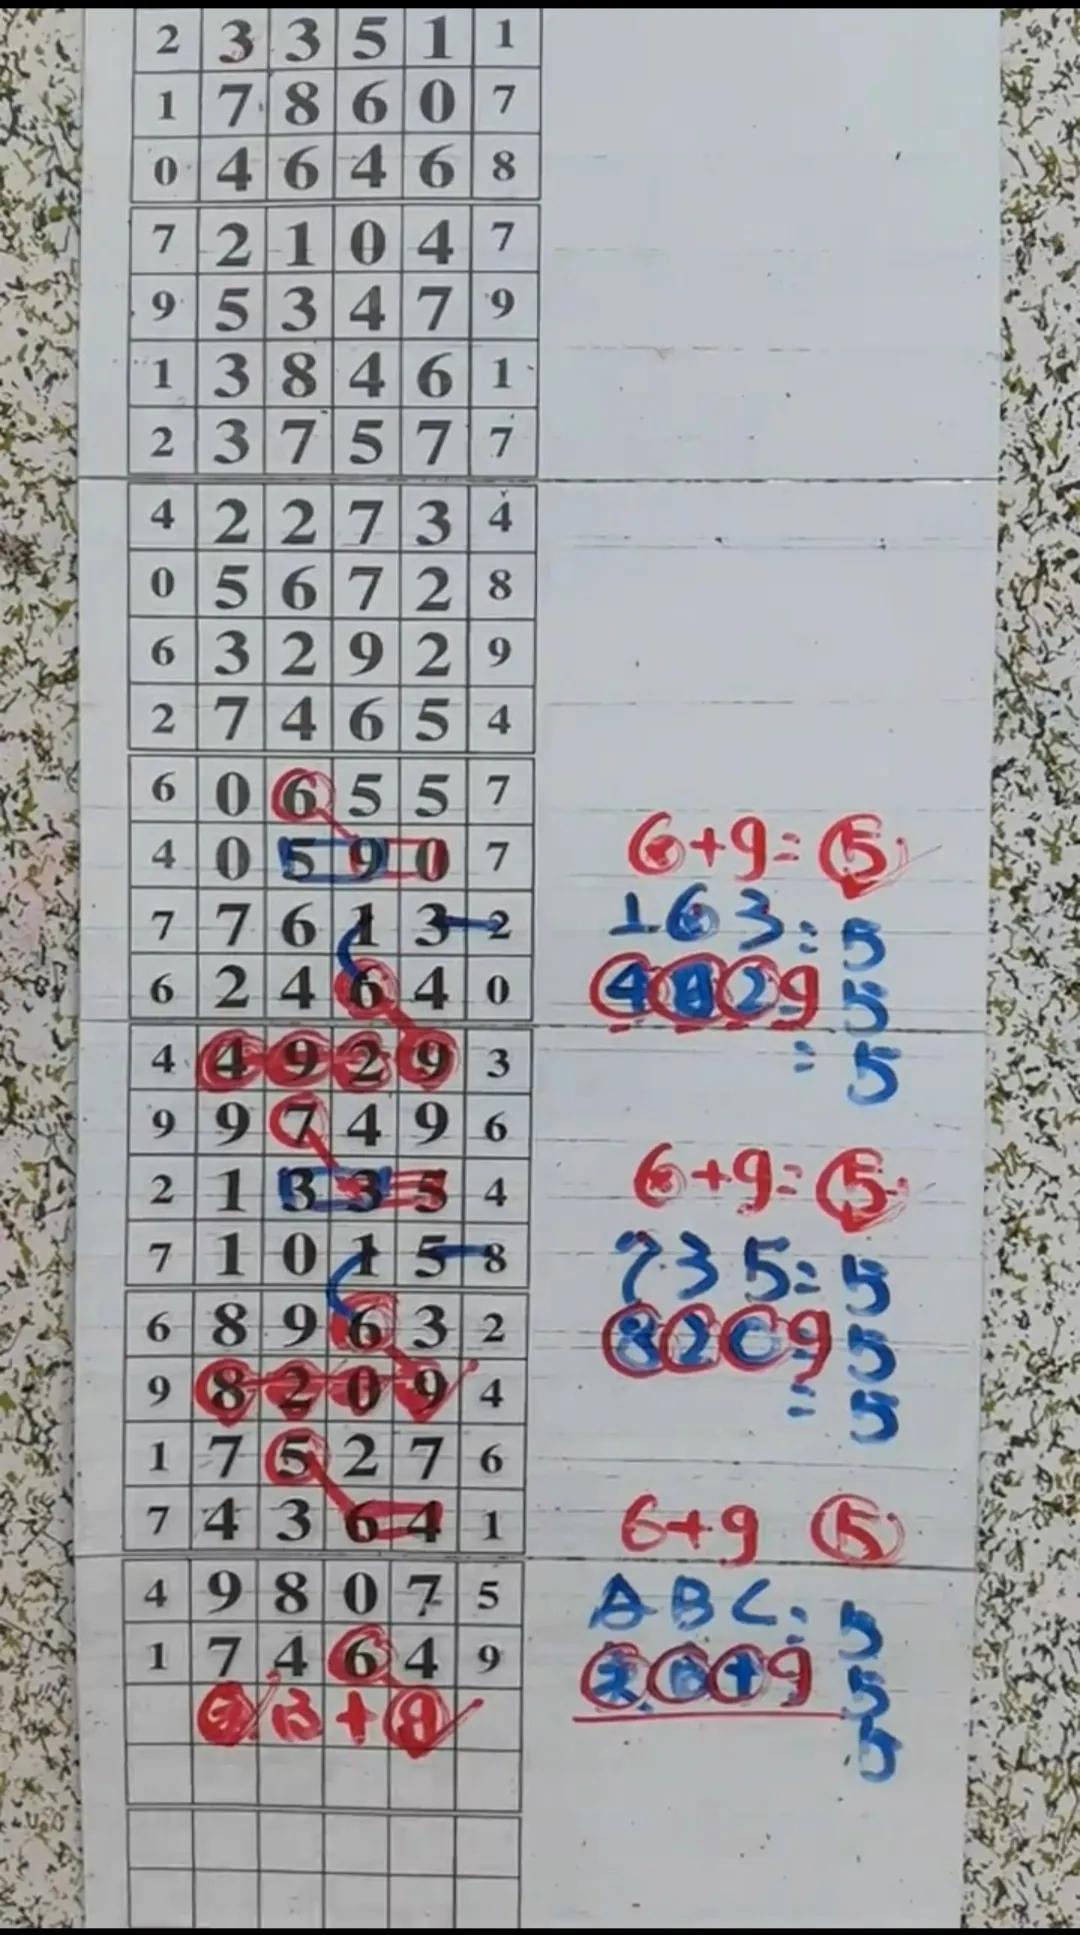 2 3 3 5 1 1
1 7 8 6 0 7
0 4 6 4 6 8
7 2 1 0 4 7
9 5 3 4 7 9
1 3 8 4 6 1
2 3 7 5 7 7
4 2 2 7 3 4
0 5 6 7 2 8
6 3 2 9 2 9
2 7 4 6 5 4
6 0 6 5 5 7
4 0 5 9 0 7 6+9=5
7 7 6 1 3 2 163=5
6 2 4 6 4 0 4 29=5
4 4 9 2 9 3 =5
9 9 7 4 9 6
2 1 3 3 5 4 6+9=5
7 1 0 1 5 8 735=5
6 8 9 6 3 2 8209=5
9 8 2 0 9 4 =5
1 7 5 2 7 6
7 4 3 6 4 1 6+9 5
4 9 8 0 7 5 ABC=5
1 7 4 6 4 9 9 5
B + 9 5